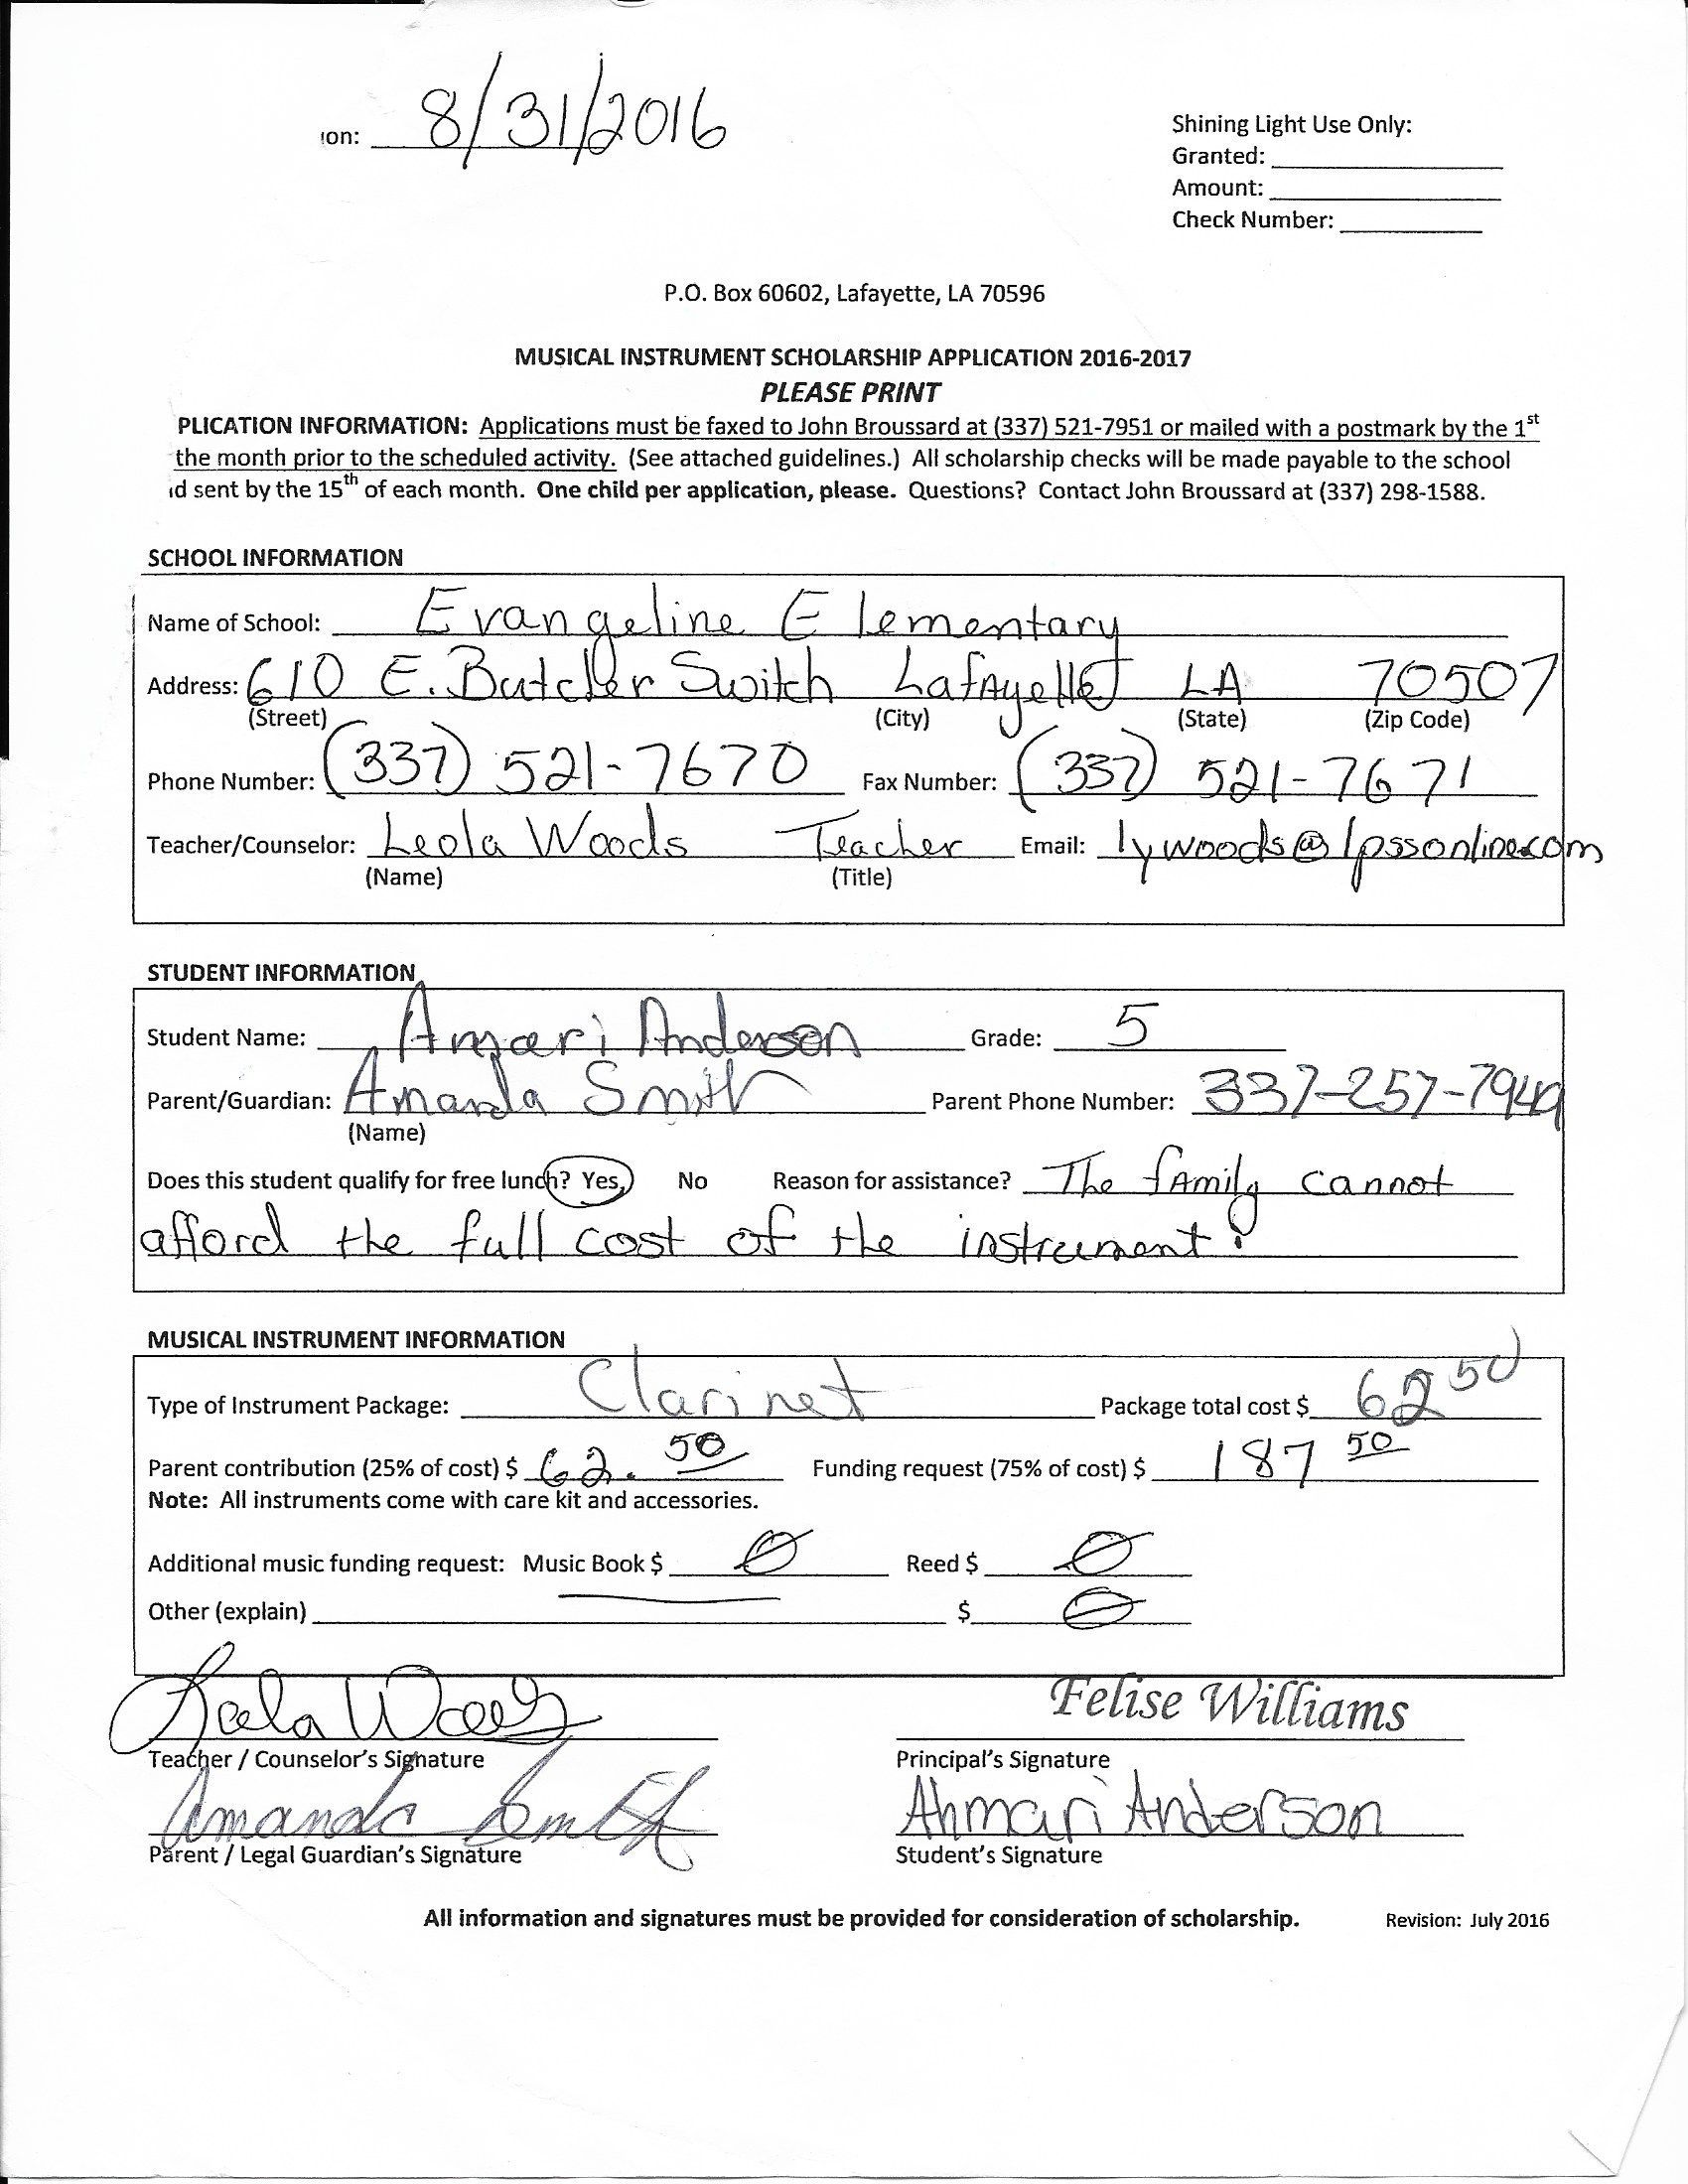 ion: 8/31/2016
Shining Light Use Only:
Granted:
Amount:
Check Number:
P.O. Box 60602, Lafayette, LA 70596
MUSICAL INSTRUMENT SCHOLARSHIP APPLICATION 2016-2017
PLEASE PRINT
PLICATION INFORMATION: Applications must be faxed to John Broussard at (337) 521-7951 or mailed with a postmark by the 1st
the month prior to the scheduled activity. (See attached guidelines.) All scholarship checks will be made payable to the school
d sent by the 15th of each month. One child per application, please. Questions? Contact John Broussard at (337) 298-1588.
SCHOOL INFORMATION
Name of School: Evangeline Elementary
Address: 610 E. Butcher Switch Lafayette LA 70507
(Street) (City) (State) (Zip Code)
Phone Number: (337) 521-7670 Fax Number: (337) 521-7671
Teacher/Counselor: Leola Woods Teacher Email: lywoods@lpssonline.com
(Name) (Title)
STUDENT INFORMATION
Student Name: Amari Anderson Grade: 5
Parent/Guardian: Amanda Smith Parent Phone Number: 337-257-7949
(Name)
Does this student qualify for free lunch? Yes, No Reason for assistance? The family cannot
afford the full cost of the instrument.
MUSICAL INSTRUMENT INFORMATION
Type of Instrument Package: Clarinet Package total cost $ 62 50
Parent contribution (25% of cost) $ 62. 50 Funding request (75% of cost) $ 187 50
Note: All instruments come with care kit and accessories.
Additional music funding request: Music Book $ 0 Reed $ 0
Other (explain) $ 0
Leola Woods Felise Williams
Teacher / Counselor's Signature Principal's Signature
Amanda Smith Ahmari Anderson
Parent / Legal Guardian's Signature Student's Signature
All information and signatures must be provided for consideration of scholarship. Revision: July 2016